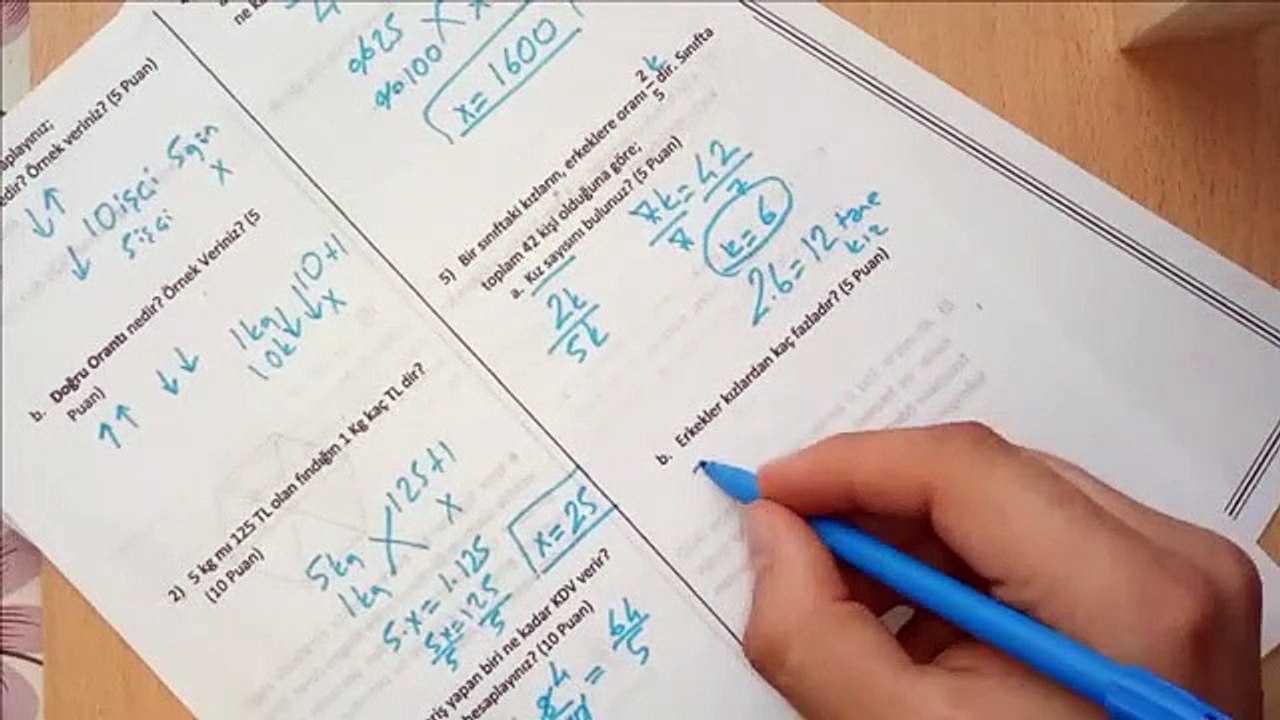 edir? Örnek veriniz? (5 Puan)
↓↑
↓ 10 işçi 5 gün
5 işçi x
b. Doğru Orantı nedir? Örnek Veriniz? (5
Puan)
↑↑ ↓↓
1kg 10+1
10k x
2) 5 kg mı 125 TL olan fındığın 1 Kg kaç TL dir?
(10 Puan)
5kg 125+1
1kg x
5.x = 1.125
5x/5 = 125/5
x = 25
riş yapan biri ne kadar KDV verir?
hesaplayınız? (10 Puan)
= 64/5
%100 x
x = 1600
5) Bir sınıftaki kızların, erkeklere oranı 2/5 dir. Sınıfta
toplam 42 kişi olduğuna göre;
a. Kız sayısını bulunuz? (5 Puan)
2k/5k
7k/7 = 42/7
k = 6
2.6 = 12 tane
kız
b. Erkekler kızlardan kaç fazladır? (5 Puan)